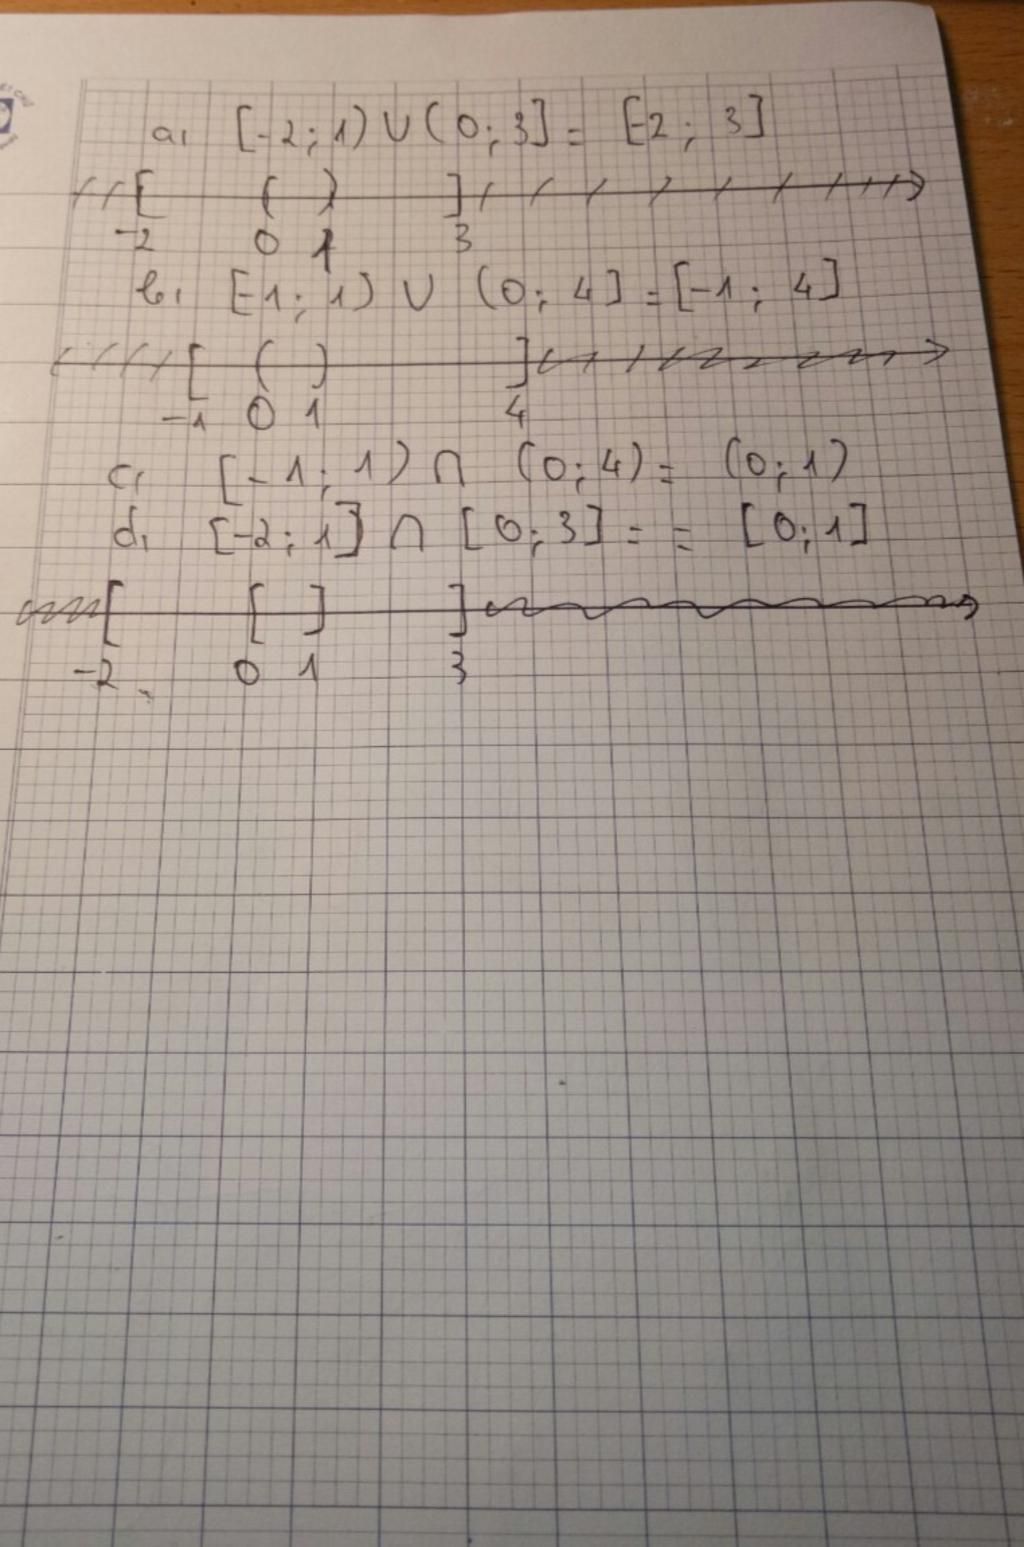 a, [-2; 1) ∪ (0; 3] = [-2; 3]
[ ( ) ]
-2 0 1 3
b, [-1; 1) ∪ (0; 4] = [-1; 4]
[ ( ) ]
-1 0 1 4
c, [-1; 1) ∩ (0; 4) = (0; 1)
d, [-2; 1] ∩ [0; 3] = = [0; 1]
[ [ ] ]
-2 0 1 3